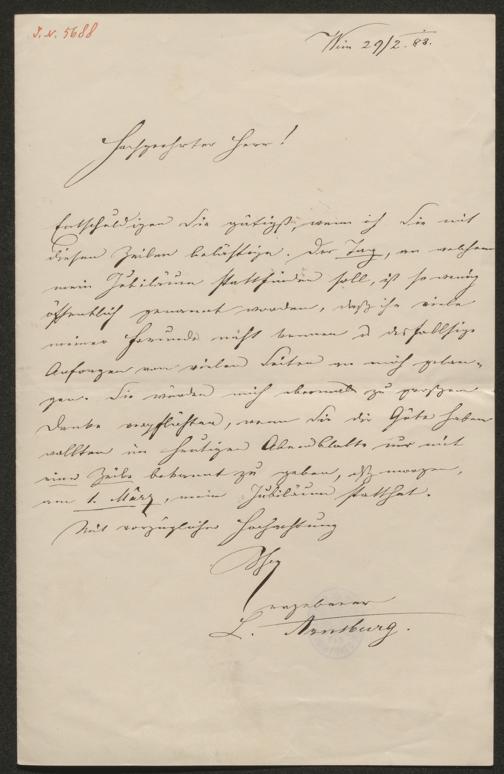 J. N. 5688
Wien 29/2. 88.
Hochgeehrter Herr!
Entschuldigen Sie gütigst, wenn ich Sie mit
diesen Zeilen belästige. Der Tag, an welchem
mein Jubiläum stattfinden soll, ist so wenig
öffentlich genannt worden, daß ihn viele
meiner Freunde nicht kennen u desfallsige
Anfragen von vielen Seiten an mich gelan-
gen. Sie würden mich abermals zu großem
Danke verpflichten, wenn Sie die Güte haben
wollten im heutigen Abendblatte nur mit
einer Zeile bekannt zu geben, daß morgen,
am 1. März, mein Jubiläum statthat.
Mit vorzüglicher Hochachtung
Ihr
ergebener
L. Arnsburg.